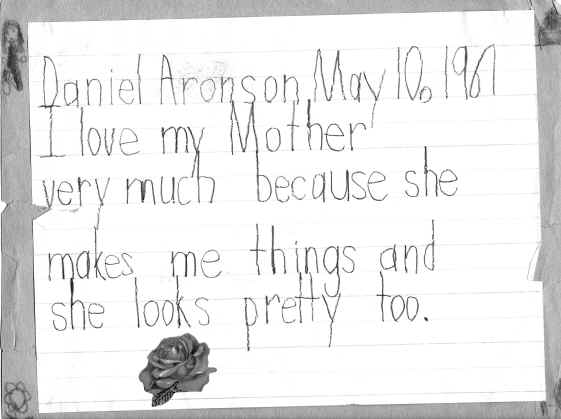 Daniel Aronson May 10, 1961
I love my Mother
very much because she
makes me things and
she looks pretty too.